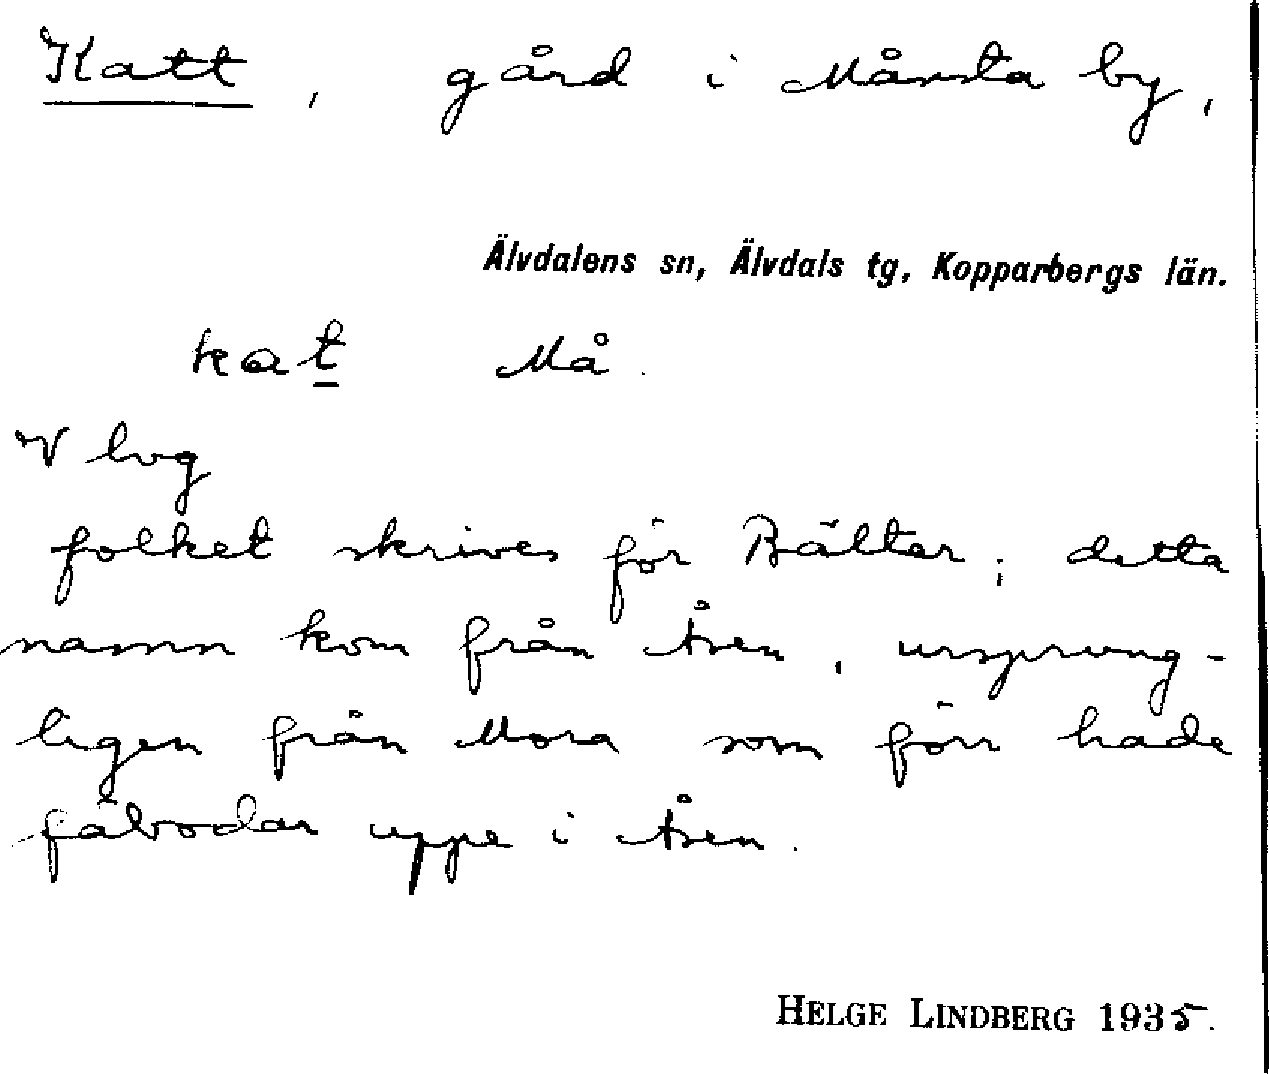 Katt, gård i Månsta by,
Älvdalens sn, Älvdals tg, Kopparbergs län.
kat Må.
V lvg
folket skrives för Bälter; detta
namn kom från Åsen, ursprung-
ligen från Mora som förr hade
fäbodar uppe i Åsen.
HELGE LINDBERG 1935.